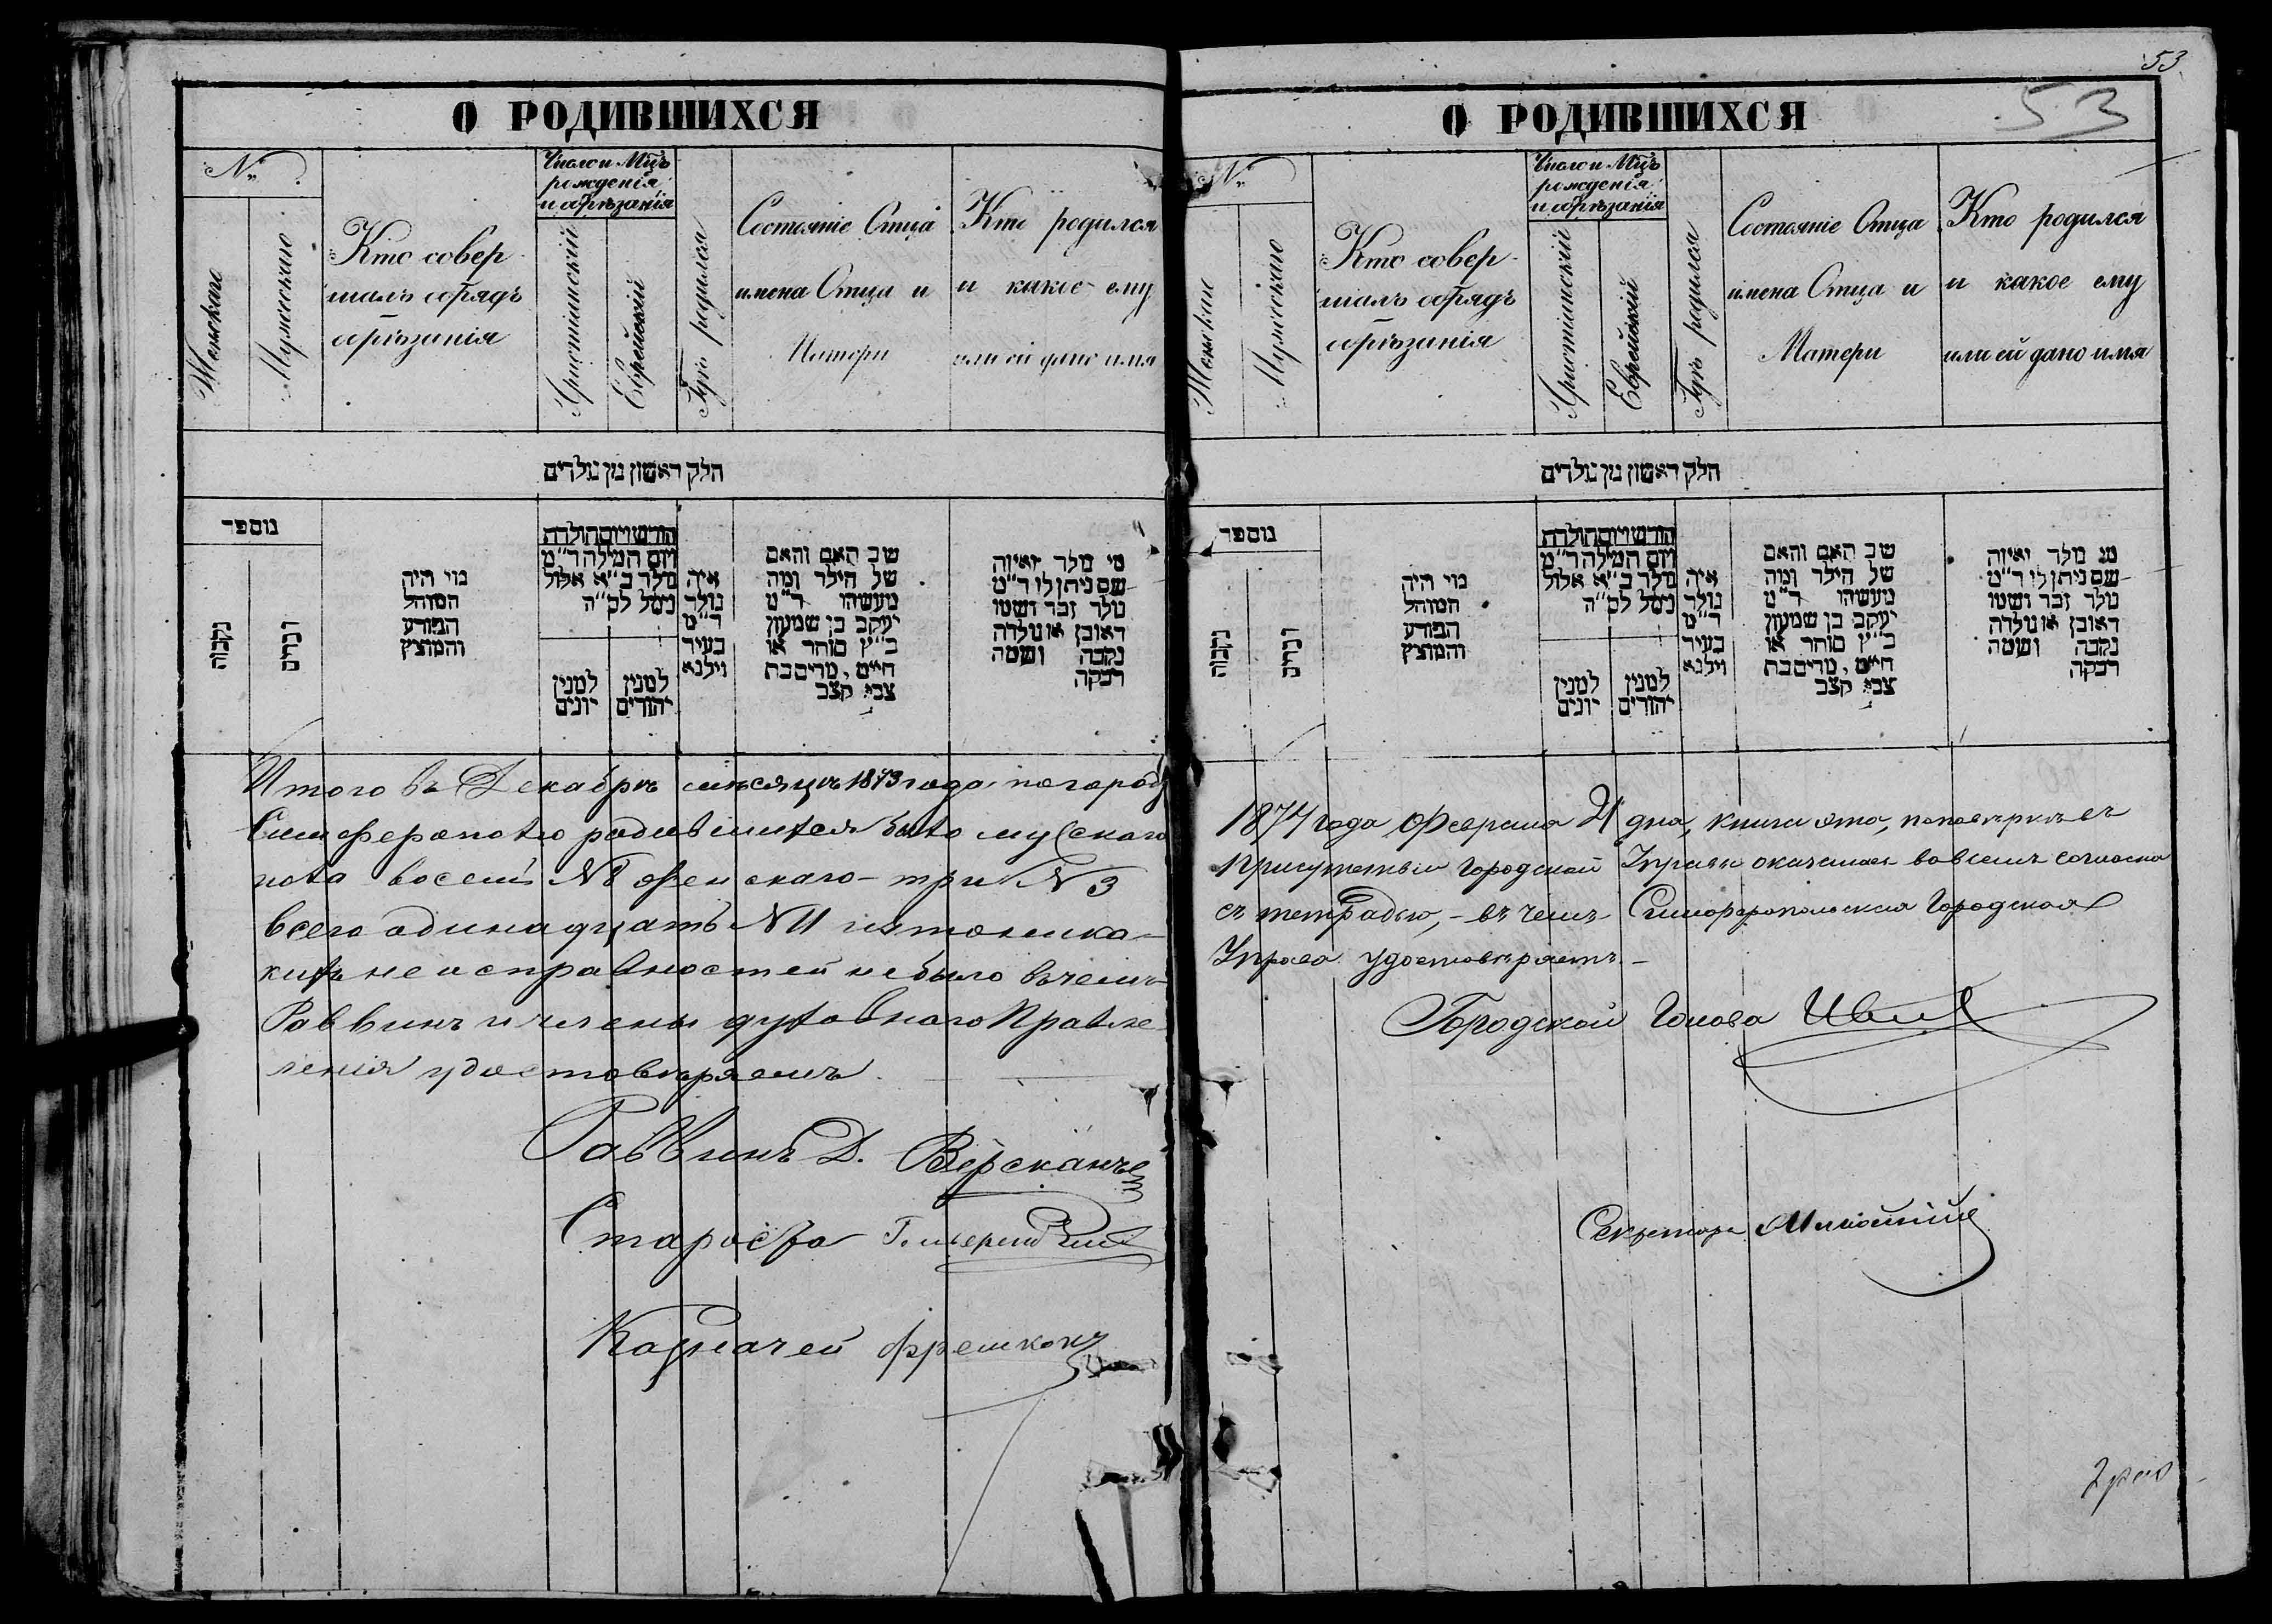 53
О РОДИВШИХСЯ
№
Женскаго
Мужескаго
Кто совер
шалъ обрядъ
обрѣзанія
Число и Мцъ
рожденія
и обрѣзанія
Христіанскій
Еврейскій
Гдѣ родился
Состояніе Отца
имена Отца и
Матери
Кто родился
и какое ему
или ей дано имя
חלק ראשון מן נולדים
מספר
נקבות
זכרים
מי היה
המוהל
הפורע
והמוצץ
חודש ויום הולדת
ויום המילה ד"מ
נולד ב"א אלול
נימל לס"ה
למנין
יונים
למנין
יהודים
איה
נולד
ד"מ
בעיר
וילנא
שב האם והאם
של הילד ומה
מעשהו ד"מ
יעקב בן שמעון
כ"ץ סוחר או
חיים, מרים בת
צבי קצב
מי נולד ואיזה
שם ניתן לו ד"מ
נולד זכר ושמו
ראובן או נולדה
נקבה ושמה
רבקה
Итого въ Декабрѣ мѣсяцѣ 1873 года по городу
Симферополю родившихся было мужскаго
пола восемь №8 женскаго - три №3
всего одинадцать №11 и что ника-
кихъ неисправностей не было въ чемъ
Раввинъ и члены духовнаго Правле
ленія удостовѣряемъ.
Раввинъ Д.
Староста
Казначей
О РОДИВШИХСЯ
53
№
Женскаго
Мужескаго
Кто совер
шалъ обрядъ
обрѣзанія
Число и Мцъ
рожденія
и обрѣзанія
Христіанскій
Еврейскій
Гдѣ родился
Состояніе Отца
имена Отца и
Матери
Кто родился
и какое ему
или ей дано имя
חלק ראשון מן נולדים
מספר
נקבות
זכרים
מי היה
המוהל
הפורע
והמוצץ
חודש ויום הולדת
ויום המילה ד"מ
נולד ב"א אלול
נימל לס"ה
למנין
יונים
למנין
יהודים
איה
נולד
ד"מ
בעיר
וילנא
שב האם והאם
של הילד ומה
מעשהו ד"מ
יעקב בן שמעון
כ"ץ סוחר או
חיים, מרים בת
צבי קצב
מי נולד ואיזה
שם ניתן לו ד"מ
נולד זכר ושמו
ראובן או נולדה
נקבה ושמה
רבקה
1874 года Февраля 21 дня, книга эта, по повѣркѣ въ
присутствіи Городской Управы оказалась во всемъ согласна
съ тетрадью, - въ чемъ Симферопольская Городская
Управа удостовѣряетъ. -
Городской Голова
Секретарь